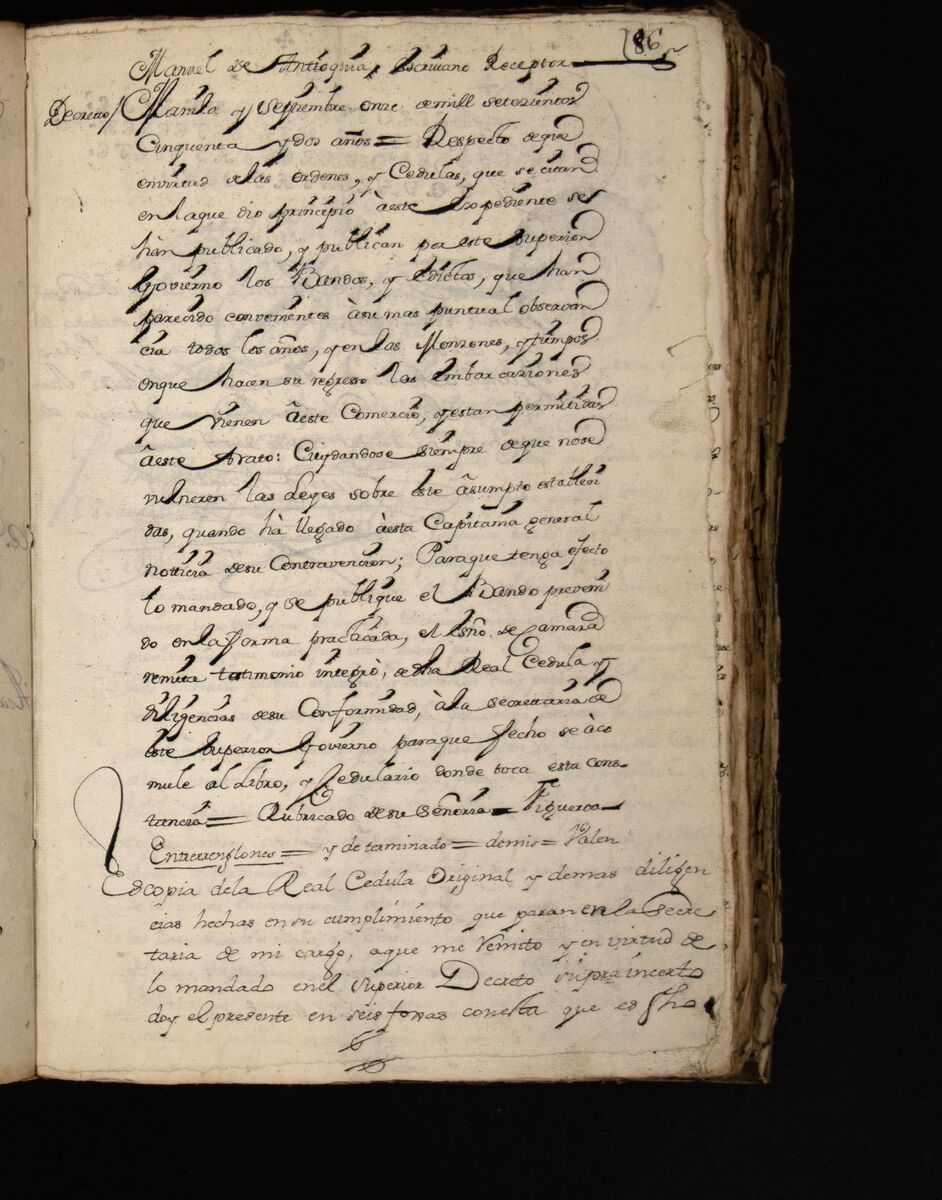 186
Manuel de Antioquia, Escriuano Receptor
Decretto / Manila y Septiembre onze de mill setezientos
Cinquenta y dos años = Respecto de que
en virtud de las ordenes, y Cedulas, que se citan
en la que dio principio à este Expediente se
hàn publicado, y publican por este Superior
Govierno los Bandos, y Edictos, que han
parecido convenientes à su mas puntual observan
cia todos los años, y en las Monzones, y tiempos
en que hacen su regreso las Embarcaziones
que vienen â este Comercio, y estan permitidas
â este trato: Cuydandose siempre de que no se
vulneren las Leyes sobre este âsumpto estableci
das, quando hà llegado à esta Capitania general
noticia de su Contravencion; Para que tenga efecto
lo mandado, y se publique el Bando preveni
do en la forma practicada, el Esño. de Camara
remita testimonio integro, de dha Real Cedula y
diligencias de su Conformidad, à la secrettaria de
este Superior Govierno para que fecho se âcu
mule al Libro, y Cedulario donde toca esta cons-
tancia = Rubricado de su Señoria = Figueroa
Entrerrenglones = y determinado = demis = Valen
Es copia de la Real Cedula Original y demas diligen
cias hechas en su cumplimiento que paran en la Secre
taria de mi cargo, a que me remito y en virtud de
lo mandado en el Superior Decreto supra incerto
doy el presente en seis foxas con esta que es fho